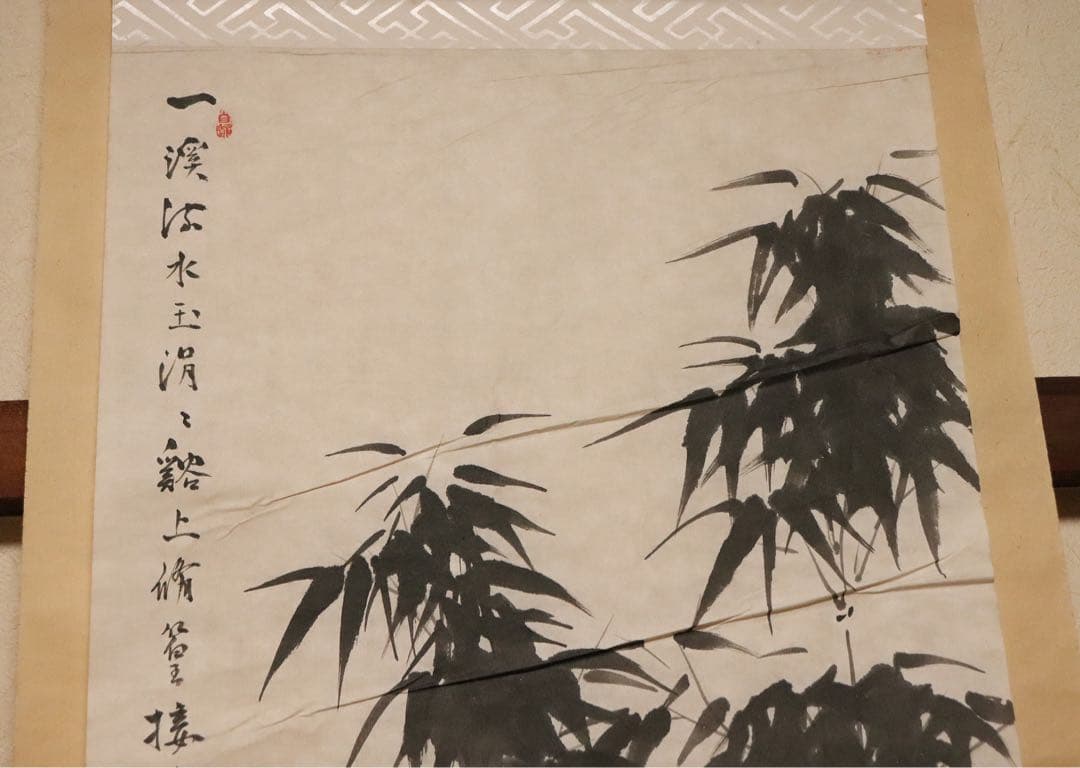 一溪流水玉涓〻谿上脩篁接